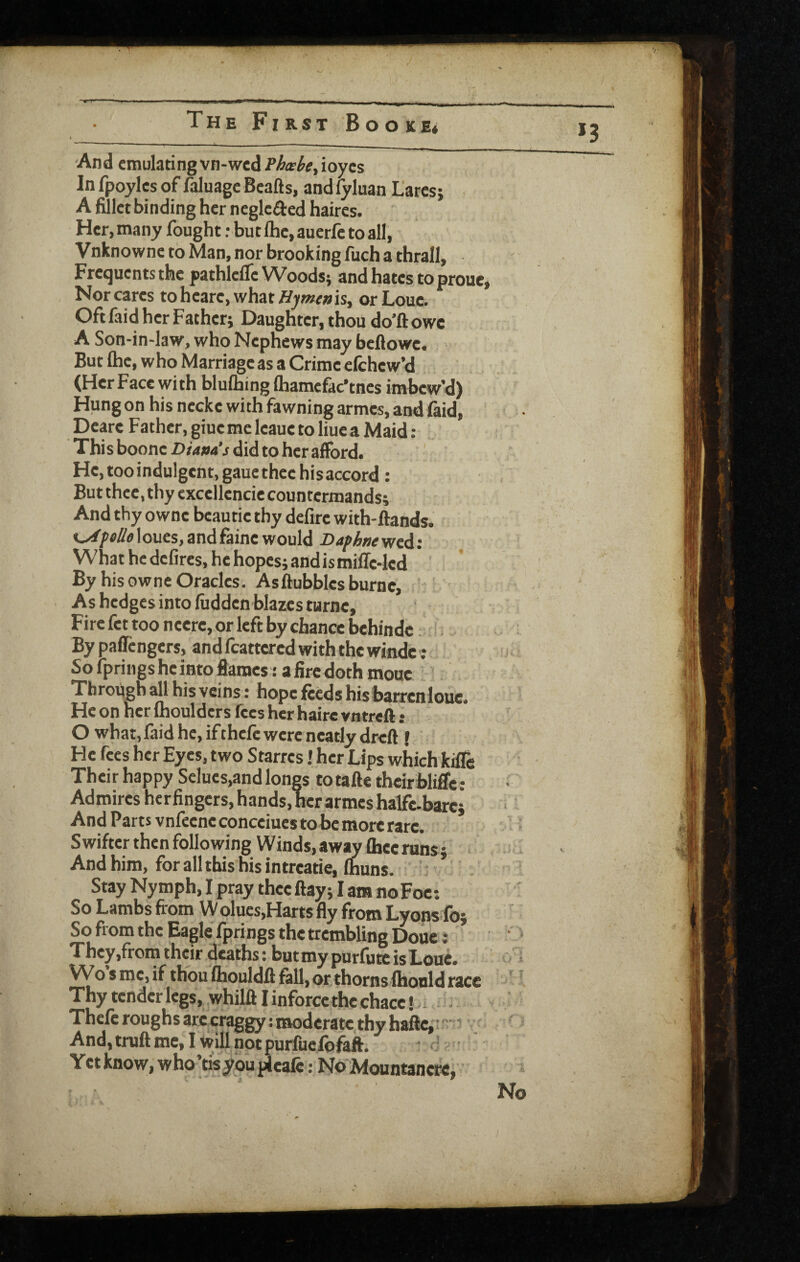 THE FIRST BOOKE.
13
And emulating vn-wed Phœbe, ioyes
In ſpoyles of ſaluage Beaſts, and ſyluan Lares;
A fillet binding her neglected haires.
Her, many ſought: but ſhe, auerſe to all,
Vnknowne to Man, nor brooking ſuch a thrall,
Frequents the pathleſſe Woods; and hates to proue,
Nor cares to heare, what Hymen is, or Loue.
Oft ſaid her Father; Daughter, thou do'ſt owe
A Son-in-law, who Nephews may beſtowe.
But ſhe, who Marriage as a Crime eſchew'd
(Her Face with bluſhing ſhamefac'tnes imbew'd)
Hung on his necke with fawning armes, and ſaid,
Deare Father, giue me leaue to liue a Maid:
This boone Diana's did to her afford.
He, too indulgent, gaue thee his accord:
But thee, thy excellencie countermands;
And thy owne beautie thy deſire with-ſtands.
Apollo loues, and faine would Daphne wed:
What he deſires, he hopes; and is miſſe-led
By his owne Oracles. As ſtubbles burne,
As hedges into ſudden blazes turne,
Fire ſet too neere, or left by chance behinde
By paſſengers, and ſcattered with the winde:
So ſprings he into flames: a fire doth moue
Through all his veins: hope feeds his barren loue.
He on her ſhoulders ſees her haire vntreſt:
O what, ſaid he, if theſe were neatly dreſt!
He ſees her Eyes, two Starres! her Lips which kiſſe
Their happy Selues, and longs to taſte their bliſſe:
Admires her fingers, hands, her armes halfe-bare;
And Parts vnſeene conceiues to be more rare.
Swifter then following Winds, away ſhee runs;
And him, for all this his intreatie, ſhuns.
Stay Nymph, I pray thee ſtay; I am no Foe:
So Lambs from Wolues, Harts fly from Lyons ſo;
So from the Eagle ſprings the trembling Doue:
They, from their deaths: but my purſute is Loue.
Wo's me, if thou ſhouldſt fall, or thorns ſhould race
Thy tender legs, whilſt I inforce the chace!
Theſe roughs are craggy: moderate thy haſte,
And, truſt me, I will not purſue ſo faſt.
Yet know, who 'tis you pleaſe: No Mountanere,
No